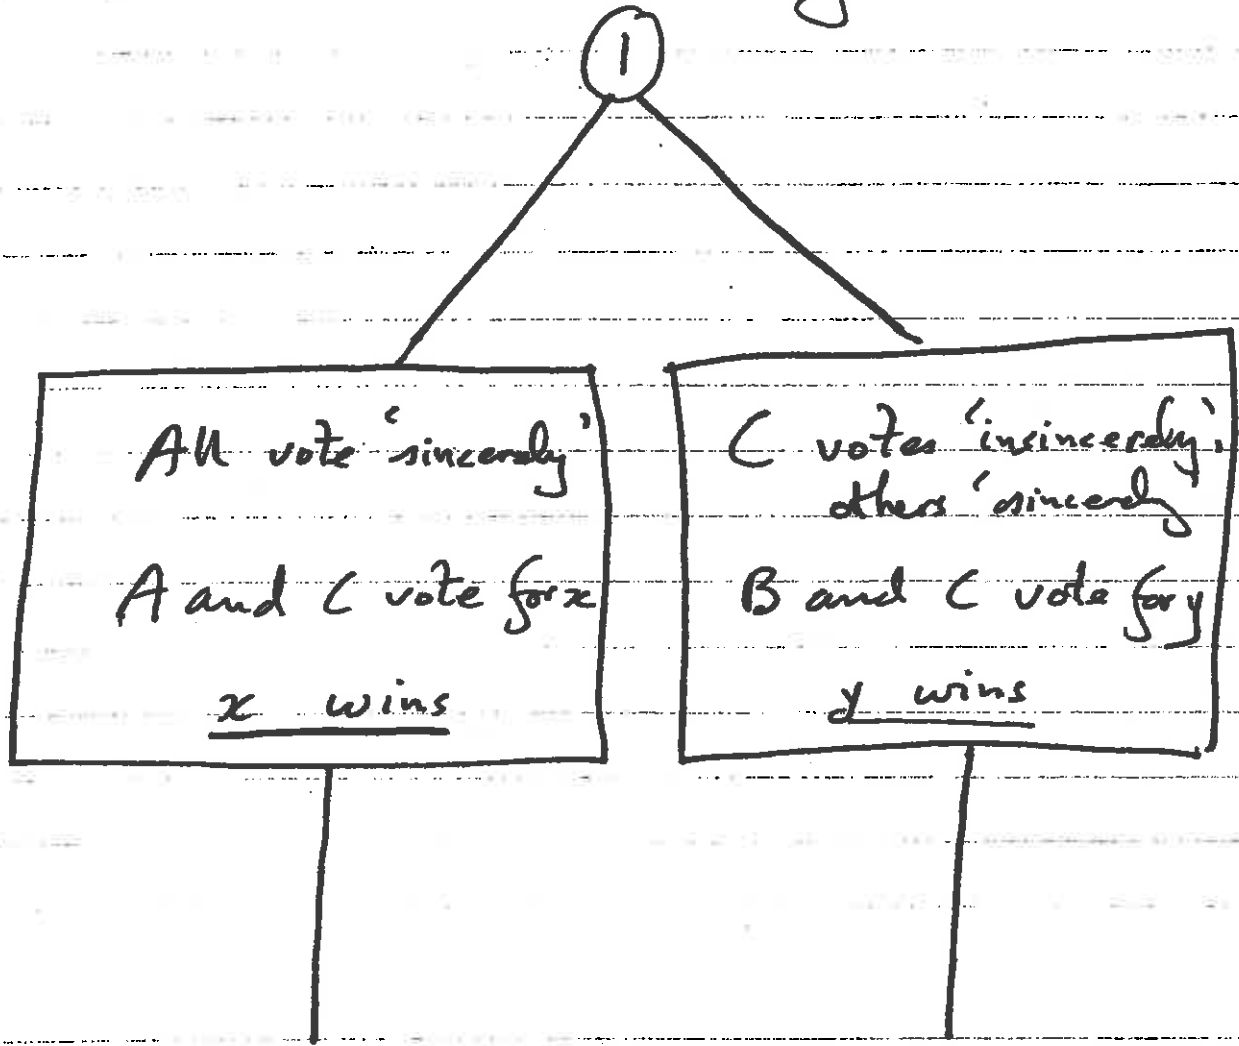 1
All vote 'sincerely'
A and C vote for x
x wins
C votes 'insincerely',
others 'sincerely'
B and C vote for y
y wins